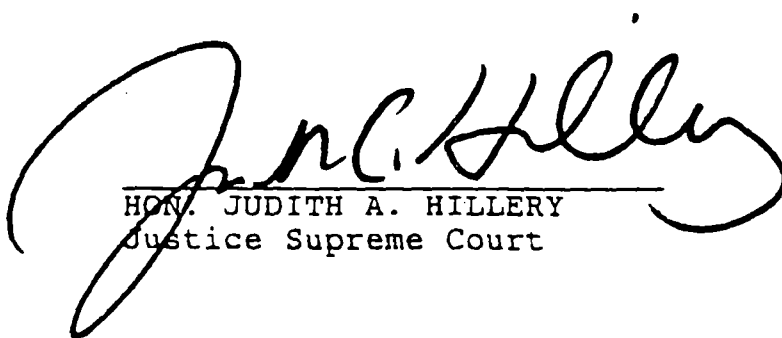 HON. JUDITH A. HILLERY
Justice Supreme Court